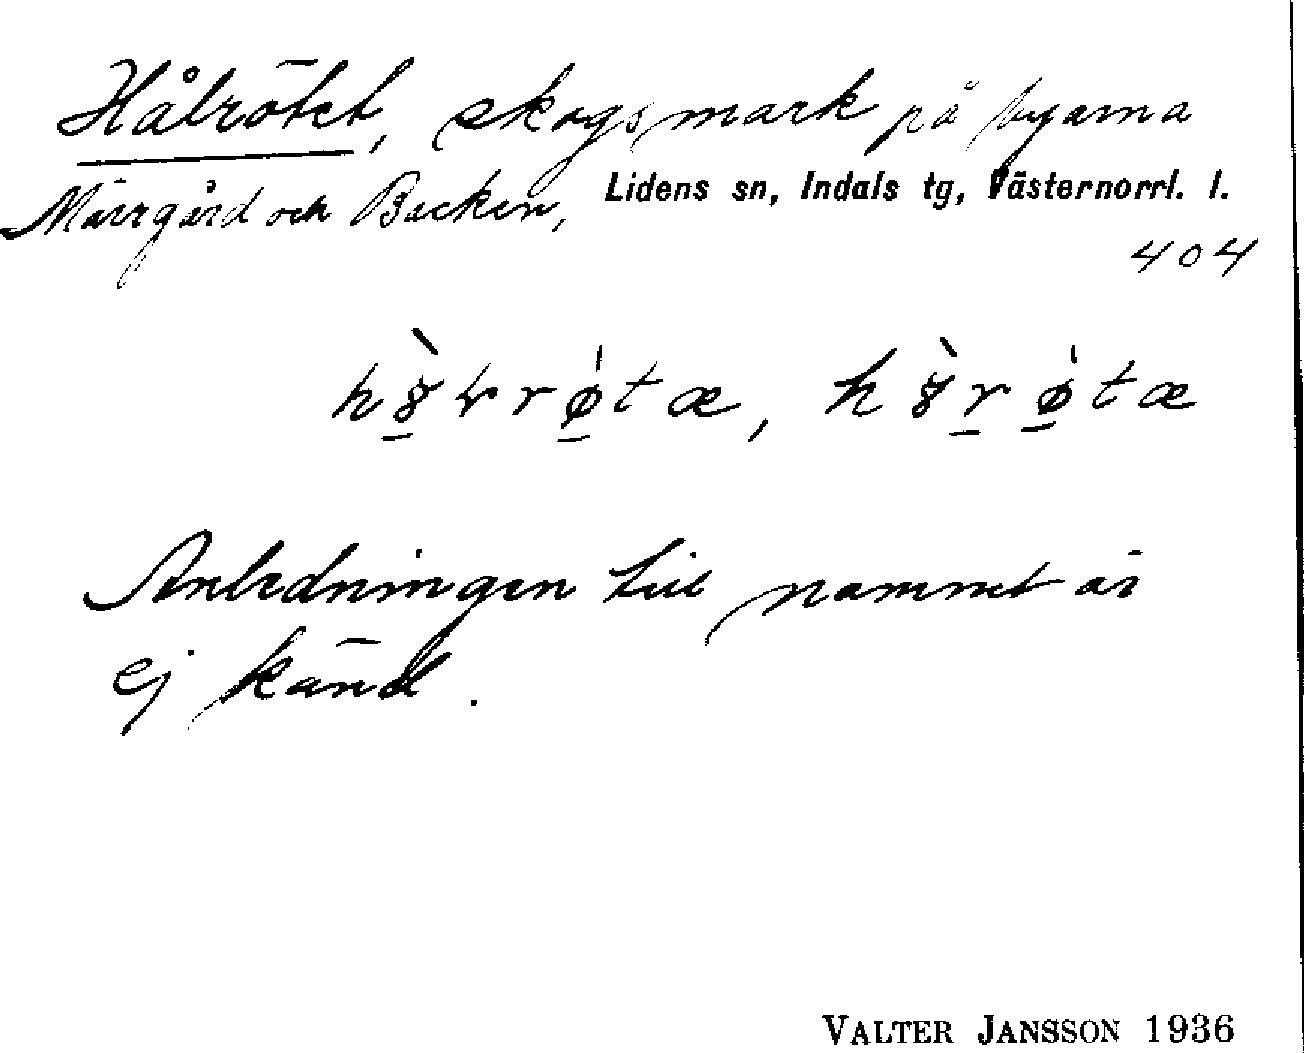 Hålrötet, skogsmark på byarna
Märrgård och Backen, Lidens sn, Indals tg, Västernorrl. l.
404
Anledningen till namnet är
ej känd.
VALTER JANSSON 1936